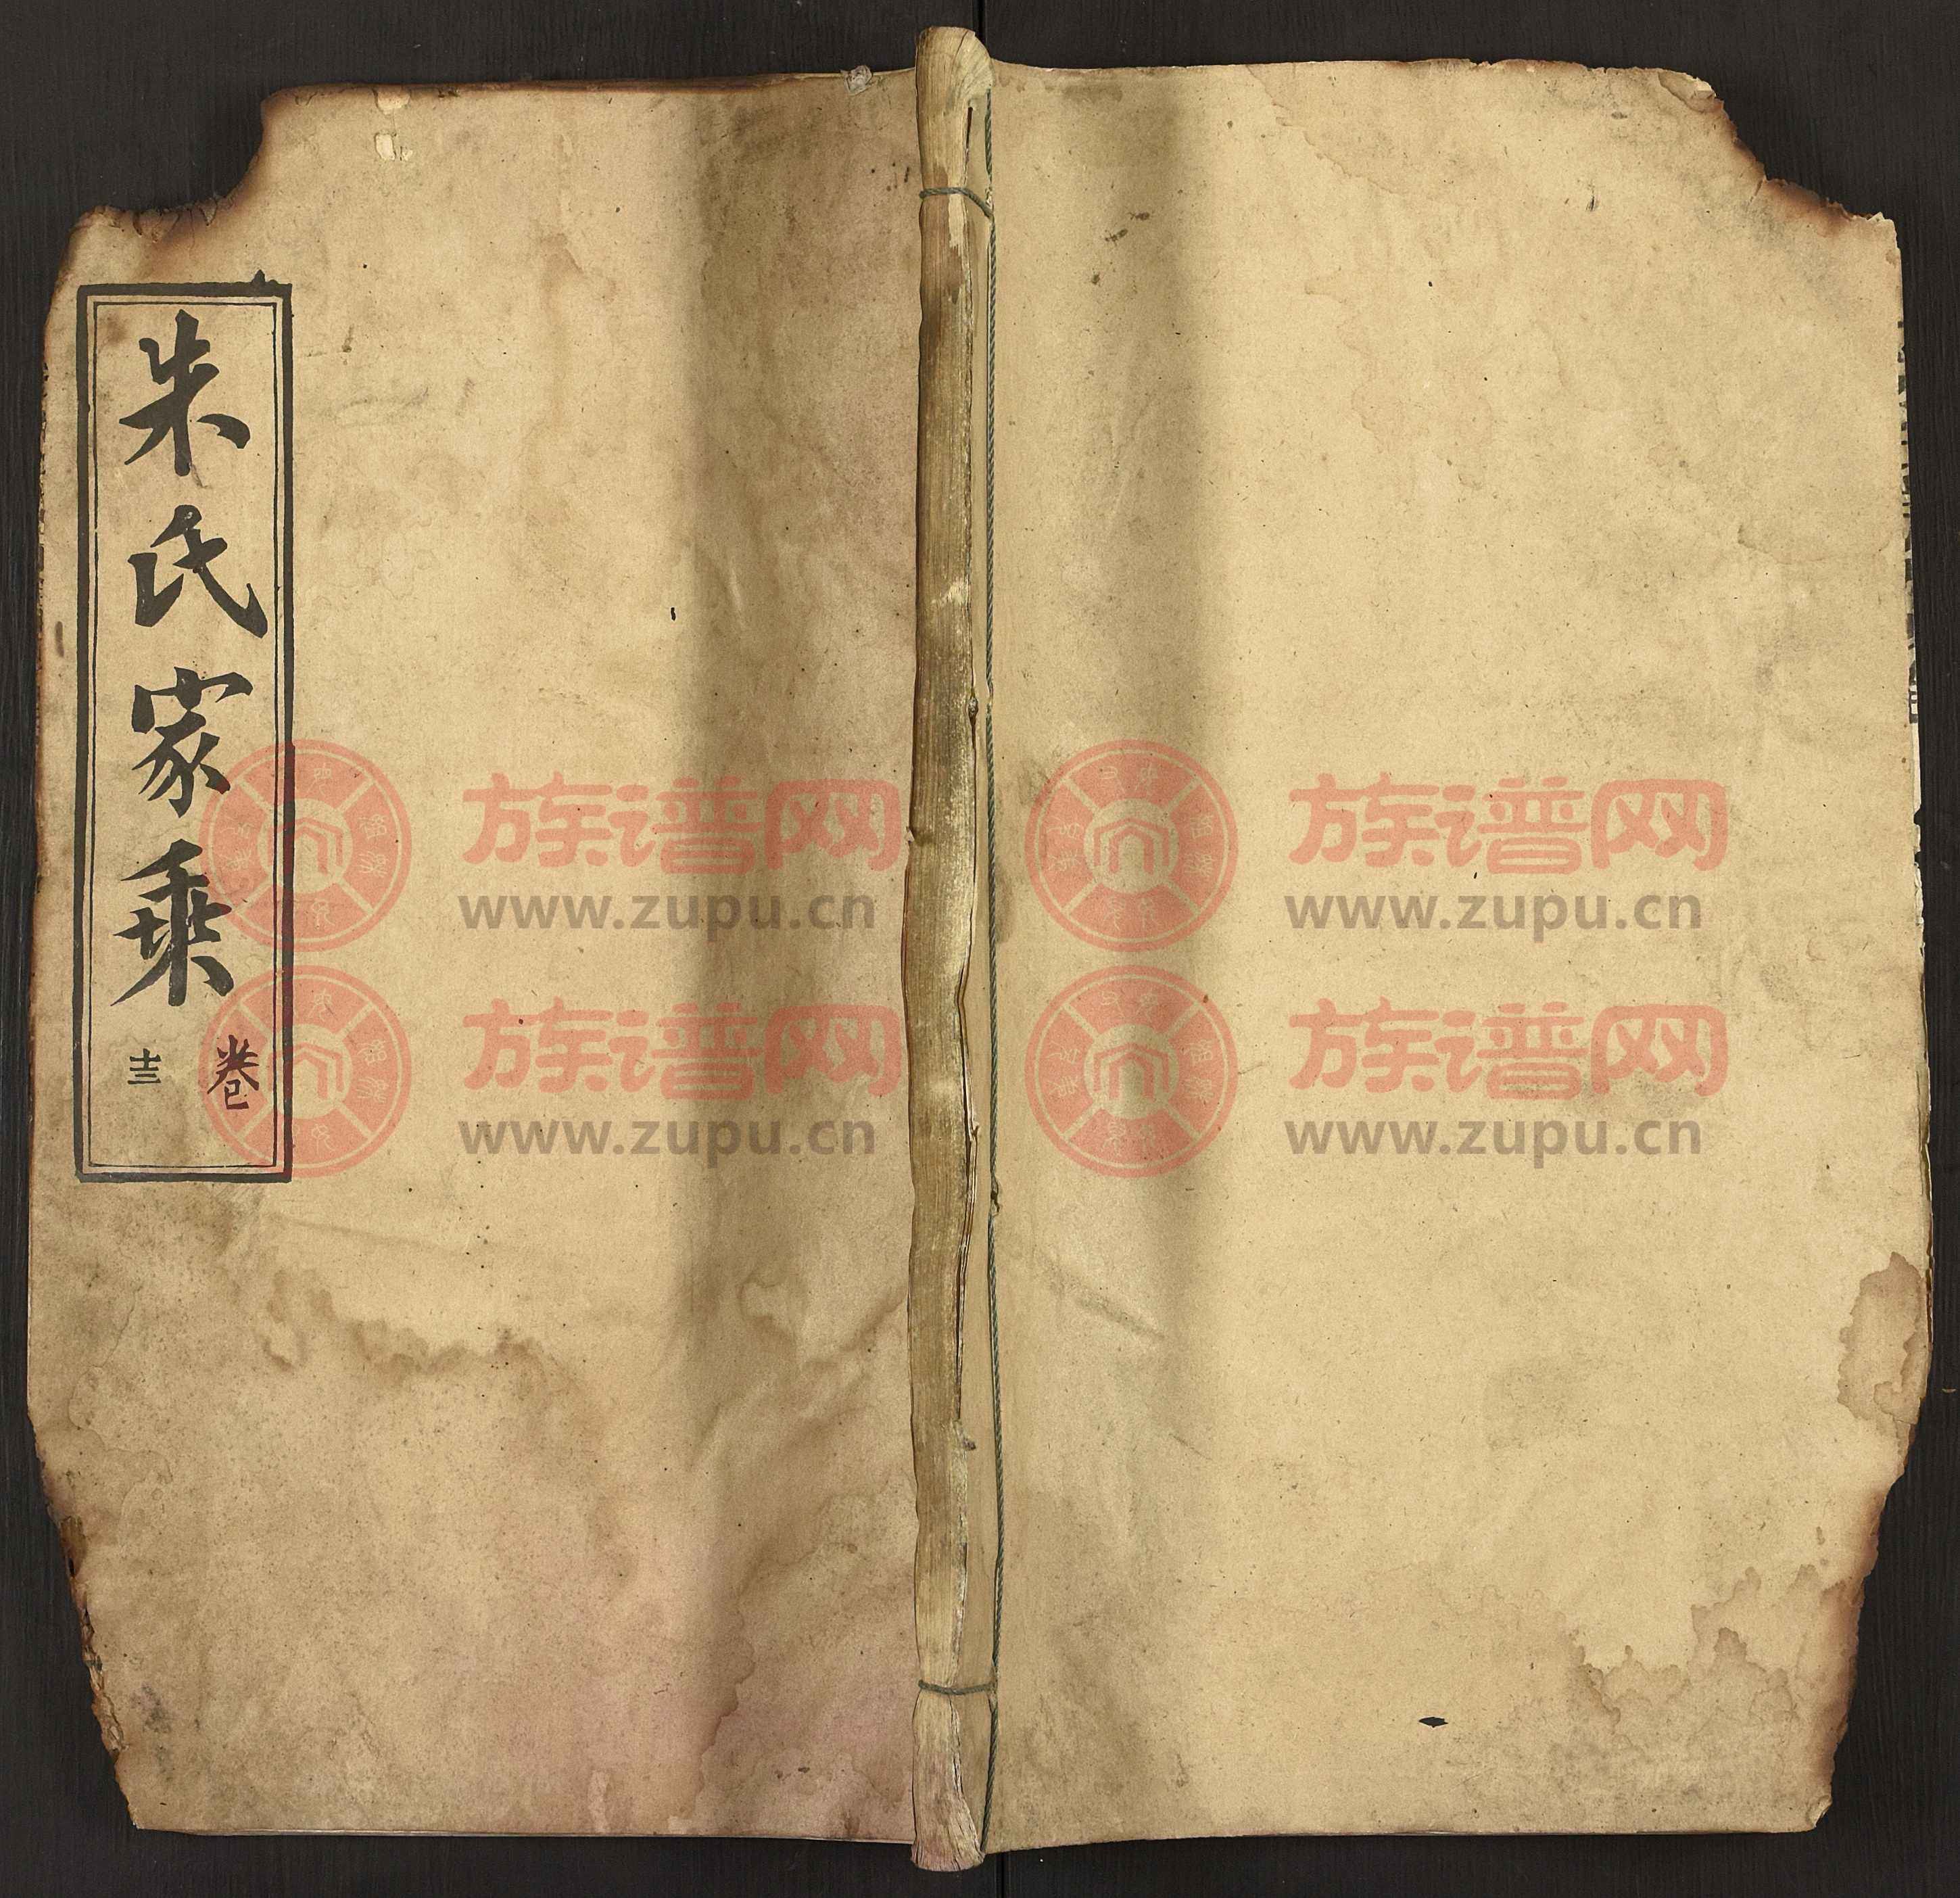 朱氏家乗
卷
十三
族谱网
www.zupu.cn
族谱网
www.zupu.cn
族谱网
www.zupu.cn
族谱网
www.zupu.cn